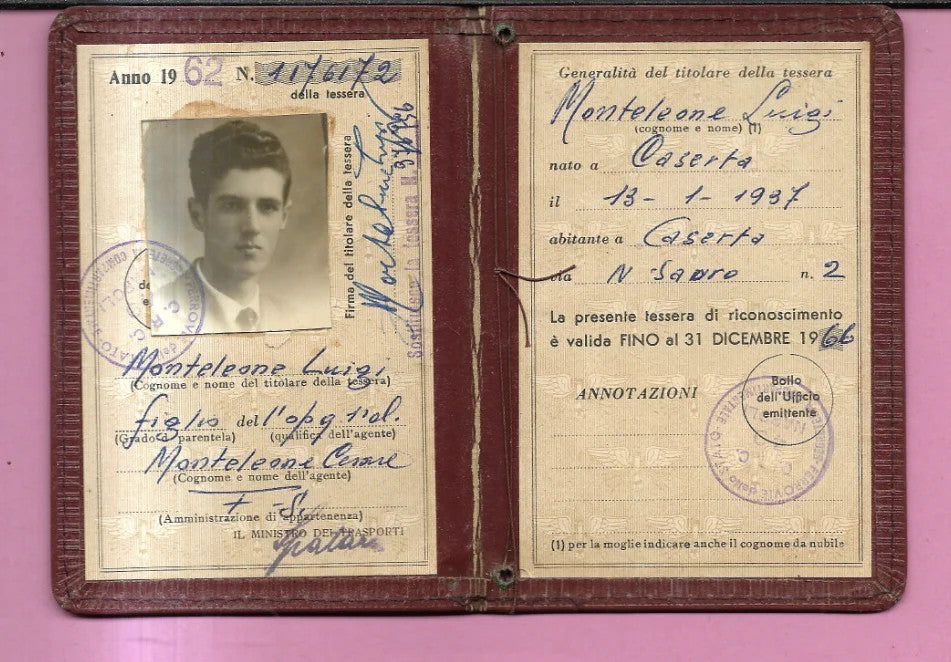 Anno 1962 N. 1176172
della tessera
Firma del titolare della tessera
Sostituisce la tessera N.
Monteleone Luigi
(Cognome e nome del titolare della tessera)
figlio dell'
(Grado di parentela) (qualifica dell'agente)
Monteleone Cesare
(Cognome e nome dell'agente)
F - S.
(Amministrazione di appartenenza)
IL MINISTRO DEI TRASPORTI
Generalità del titolare della tessera
Monteleone Luigi
(cognome e nome) (1)
nato a Caserta
il 13 - 1 - 1937
abitante a Caserta
via N Sauro n. 2
La presente tessera di riconoscimento
è valida FINO al 31 DICEMBRE 1966
ANNOTAZIONI
Bollo
dell'Ufficio
emittente
(1) per la moglie indicare anche il cognome da nubile